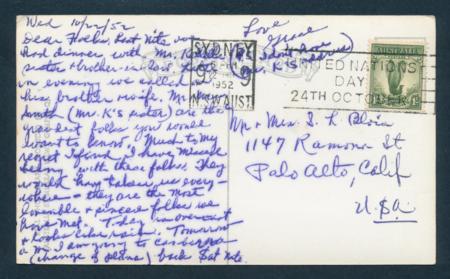 Wed 10/22/52
Dear Folks, Last Nite we
had dinner with Mr. K's
sister & brother in law. Last
in evening we called
his brother & wife. Mr. & Mrs.
Smith (Mr. K's sister) are the
grandest folks you would
want to know. Much to my
regret I find I have
with these folks. They
would have taken us every-
where - they are the most
lovable & sincere folks we
have met. Today is overcast
& looks like rain. Tomorrow
a m I am going to Canberra
(change of plans) back Sat Nite.
Love
SYDNEY
9
1952
N.S.W. AUST.
UNITED NATIONS
DAY
24TH OCTOBER
AUSTRALIA
Mr & Mrs S. L.
1147 Ramona St
Palo Alto, Calif
U.S.A.